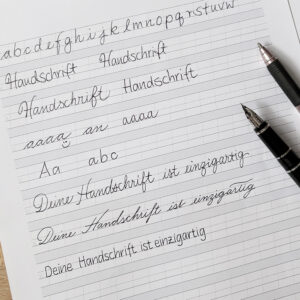 abcdefghijklmnopqrstuvw
Handschrift Handschrift
Handschrift Handschrift
aaaa an aaaa
Aa abc
Deine Handschrift ist einzigartig
Deine Handschrift ist einzigartig
Deine Handschrift ist einzigartig